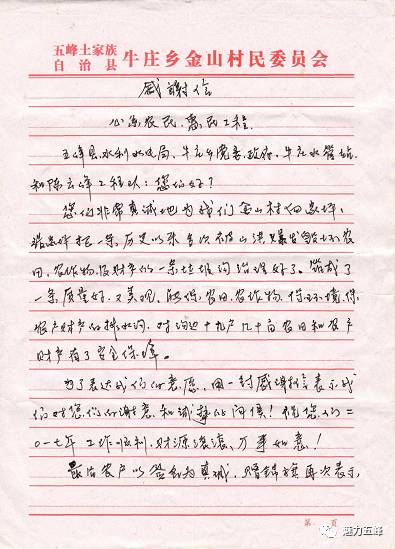 五峰土家族
自治县
牛庄乡金山村民委员会
感谢信
心系农民，惠民工程。
五峰县水利水电局、牛庄乡党委、政府、牛庄水管站
和陈云峰工程队：您们好？
您们非常真诚地为我们金山村
一条，历史以来多次被山洪暴发毁坏农
田，农作物，及财产的一条垃圾沟治理好了。筑成了
一条质量好，又美观，能保农田，农作物，保环境，保
农户财产的排水沟，对沟边十九户几十亩农田和农户
财产有了安全保障。
为了表达我们的意愿，用一封感谢信表示我
们对您们的谢意和诚挚的问候！祝您们二
〇一七年工作顺利，财源滚滚，万事如意！
最后农户以签名为真诚，赠锦旗再次表示，
第 页
魅力五峰